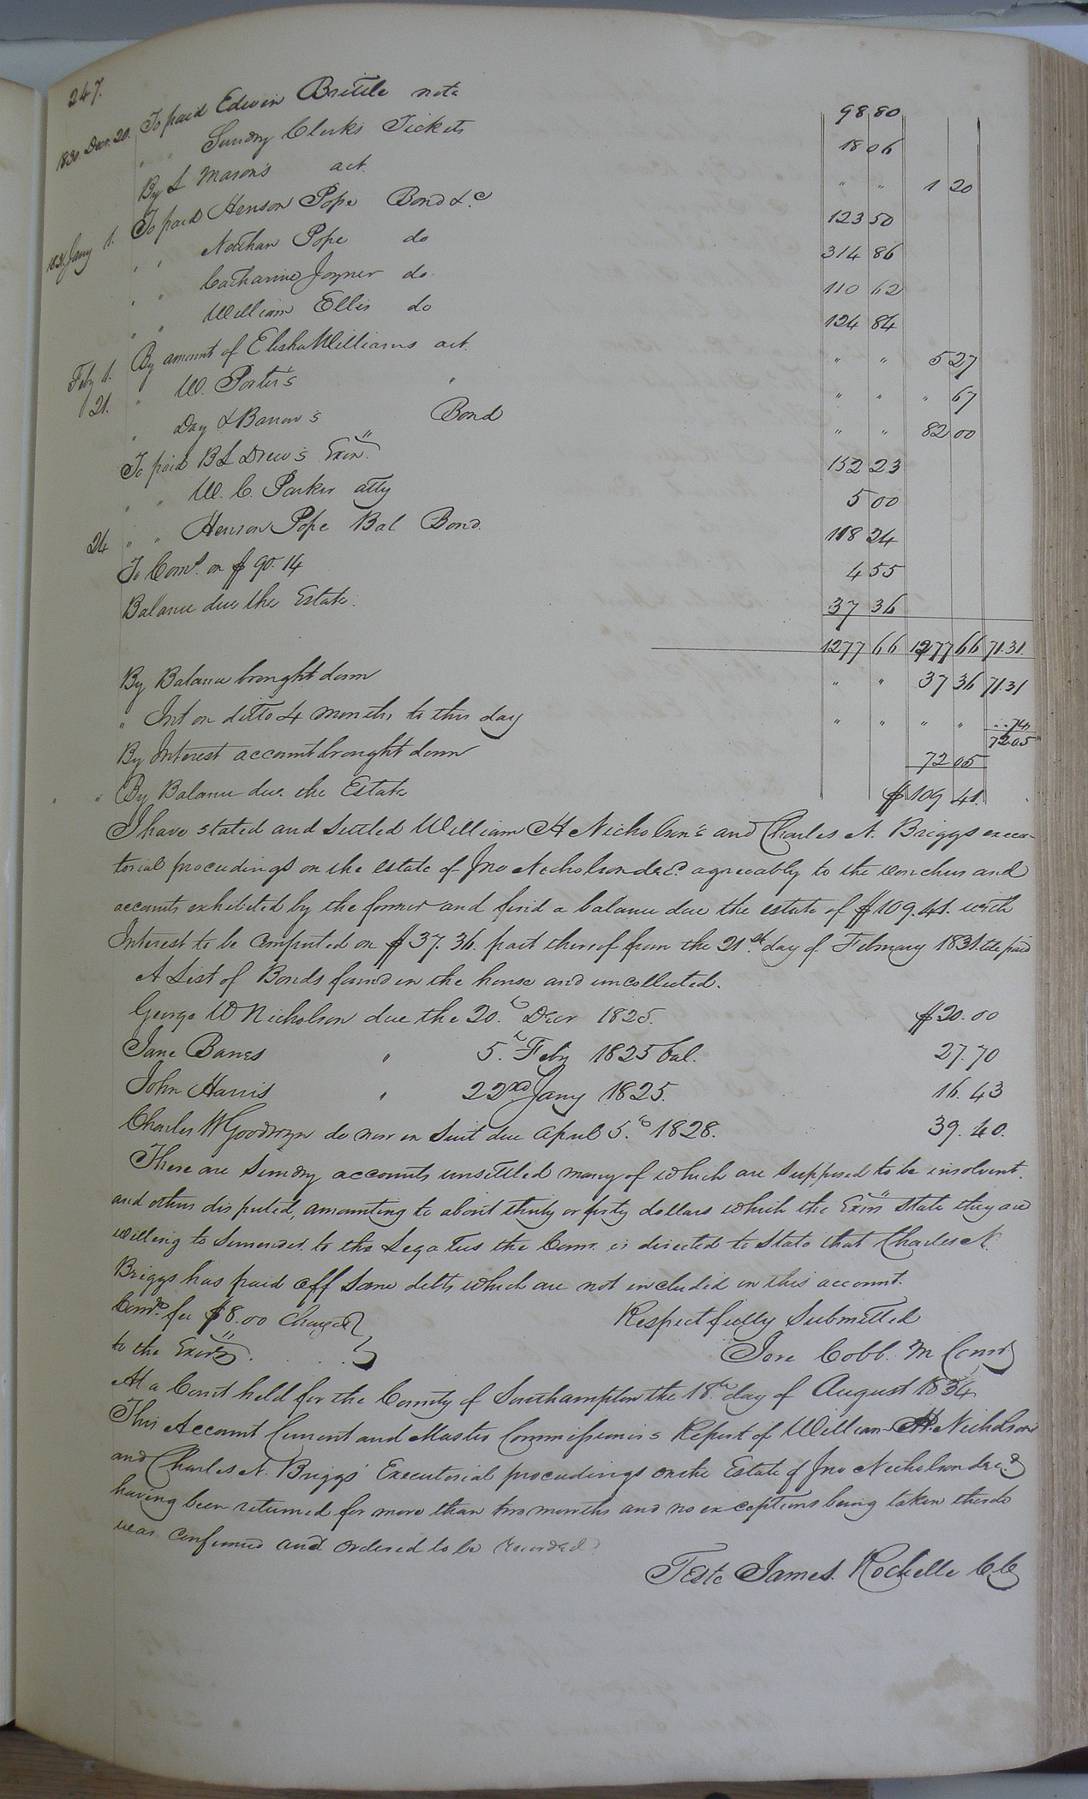 247.
1830 Decr. 20. To paid Edwin Brittle note 98 80
" " Sundry Clerks Tickets 18 06
By L Mason's act. " " 1 20
1831 Jany 1. To paid Henson Pope Bond &c 123 50
" " Nathan Pope do 314 86
" " Catharine Joyner do. 110 62
" " William Ellis do 124 84
Feby 1. By amount of Elisha Williams act. " " 5 27
21. " W. Porter's " " " " 67
" Day & Barrow's Bond " " 82 00
To paid B L Drew's Exor. 152 23
" " W. C. Parker atty 5 00
24 " " Henson Pope Bal Bond. 118 24
To Coms. on $ 90.14 4 55
Balance due the Estate. 37 36
1277 66 1277 66 71.31
By Balance brought down " " 37 36 71.31
" Int on ditto 4 months to this day " " " " .. 74
72.05
By Interest account brought down 72 05
" " By Balance due the Estate $ 109 41.
I have stated and settled William H Nicholson's and Charles N. Briggs execu-
torial proceedings on the estate of Jno Nicholson decd. agreeably to the vouchers and
accounts exhibited by the former and find a balance due the estate of $109.41. with
Interest to be computed on $37.36. part thereof from the 21st. day of February 1831. till paid
A List of Bonds found in the house and uncollected.
George W Nicholson due the 20.th Decr 1825. $20.00
Jane Banes " 5.th Feby 1825 bal. 27.70
John Harris " 22nd Jany 1825. 16.43
Charles W Goodwyn do now in Suit due April 5.th 1828. 39.40.
There are Sundry accounts unsettled many of which are supposed to be insolvent.
and others disputed, amounting to about thirty or forty dollars which the Exors State they are
willing to Surrender to the Legatees the Comr. is directed to State that Charles N.
Briggs has paid off Some debts which are not included in this account.
Comrs. fee $8.00 Charged } Respectfully Submitted
to the Exors. . . . } Jore Cobb. M Comr
At a Court held for the County of Southampton the 18.th day of August 1834
This Account Current and Master Commissioner's Report of William H Nicholson
and Charles N. Briggs' Executorial proceedings on the Estate of Jno Nicholson decd.
having been returned for more than two months and no exceptions being taken thereto
was confirmed and ordered to be recorded
Teste James. Rochelle CC